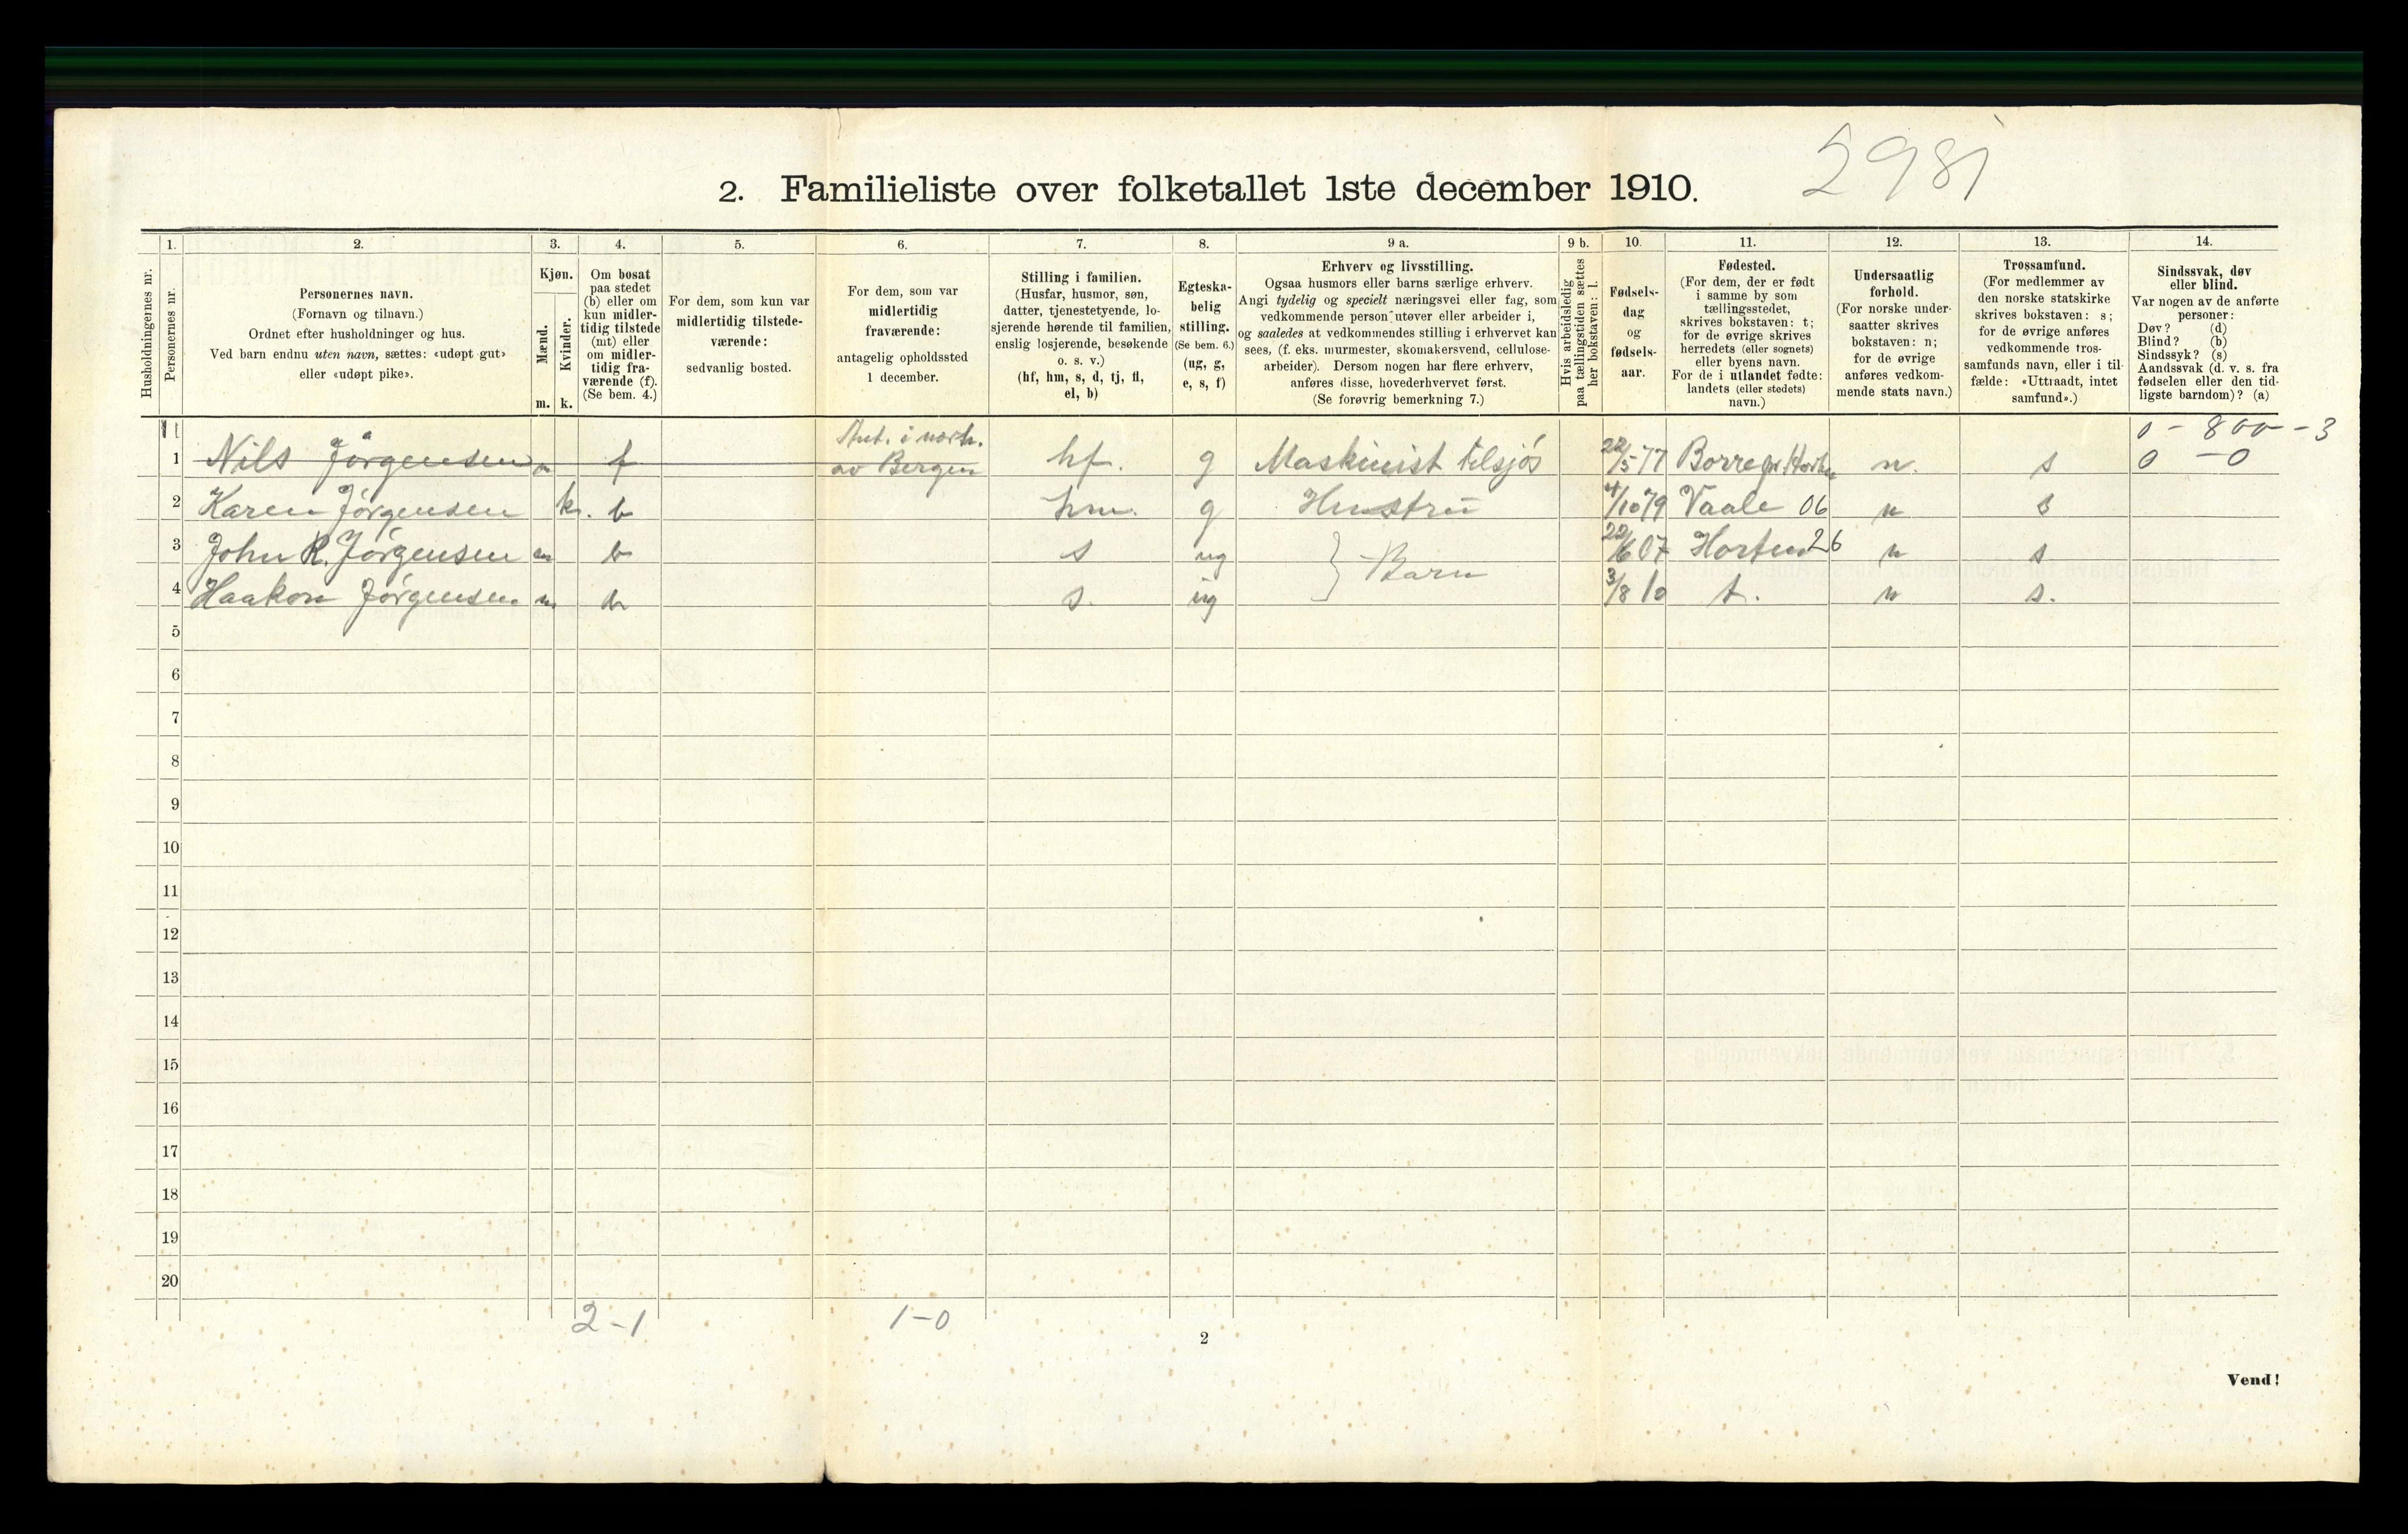 5981
2. Familieliste over folketallet 1ste december 1910.
Husholdningernes nr.
1.
Personernes nr.
2.
Personernes navn.
(Fornavn og tilnavn.)
Ordnet efter husholdninger og hus.
Ved barn endnu uten navn, sættes: «udøpt gut»
eller «udøpt pike».
3.
Kjøn.
Mænd.
Kvinder.
m. k.
4.
Om bosat
paa stedet
(b) eller om
kun midler-
tidig tilstede
(mt) eller
om midler-
tidig fra-
værende (f).
(Se bem. 4.)
5.
For dem, som kun var
midlertidig tilstede-
værende:
sedvanlig bosted.
6.
For dem, som var
midlertidig
fraværende:
antagelig opholdssted
1 december.
7.
Stilling i familien.
(Husfar, husmor, søn,
datter, tjenestetyende, lo-
sjerende hørende til familien,
enslig losjerende, besøkende
o. s. v.)
(hf, hm, s, d, tj, fl,
el, b)
8.
Egteska-
belig
stilling.
(Se bem. 6.)
(ug, g,
e, s, f)
9 a.
Erhverv og livsstilling.
Ogsaa husmors eller barns særlige erhverv.
Angi tydelig og specielt næringsvei eller fag, som
vedkommende person utøver eller arbeider i,
og saaledes at vedkommendes stilling i erhvervet kan
sees, (f. eks. murmester, skomakersvend, cellulose-
arbeider). Dersom nogen har flere erhverv,
anføres disse, hovederhvervet først.
(Se forøvrig bemerkning 7.)
9 b.
Hvis arbeidsledig
paa tællingstiden sættes
her bokstaven: l.
10.
Fødsels-
dag
og
fødsels-
aar.
11.
Fødested.
(For dem, der er født
i samme by som
tællingsstedet,
skrives bokstaven: t;
for de øvrige skrives
herredets (eller sognets)
eller byens navn.
For de i utlandet fødte:
landets (eller stedets)
navn.)
12.
Undersaatlig
forhold.
(For norske under-
saatter skrives
bokstaven: n;
for de øvrige
anføres vedkom-
mende stats navn.)
13.
Trossamfund.
(For medlemmer av
den norske statskirke
skrives bokstaven: s;
for de øvrige anføres
vedkommende tros-
samfunds navn, eller i til-
fælde: «Uttraadt, intet
samfund».)
14.
Sindssvak, døv
eller blind.
Var nogen av de anførte
personer:
Døv? (d)
Blind? (b)
Sindssyk? (s)
Aandssvak (d. v. s. fra
fødselen eller den tid-
ligste barndom)? (a)
0 - 800 - 3
1 Nils Jørgensen m f Ant. i nærh. av Bergen hf. g Maskinist tilsjøs 22/5 77 Borre pr. Horten n. s 0 - 0
2 Karen Jørgensen k. b hm. g Hustru 4/10 79 Vaale 06 n s
3 John R. Jørgensen m b s ug } Barn 22/6 07 Horten 26 n s
4 Haakon Jørgensen m b s. ug 3/8 10 t. n s.
5
6
7
8
9
10
11
12
13
14
15
16
17
18
19
20
2-1 1-0
2
Vend!